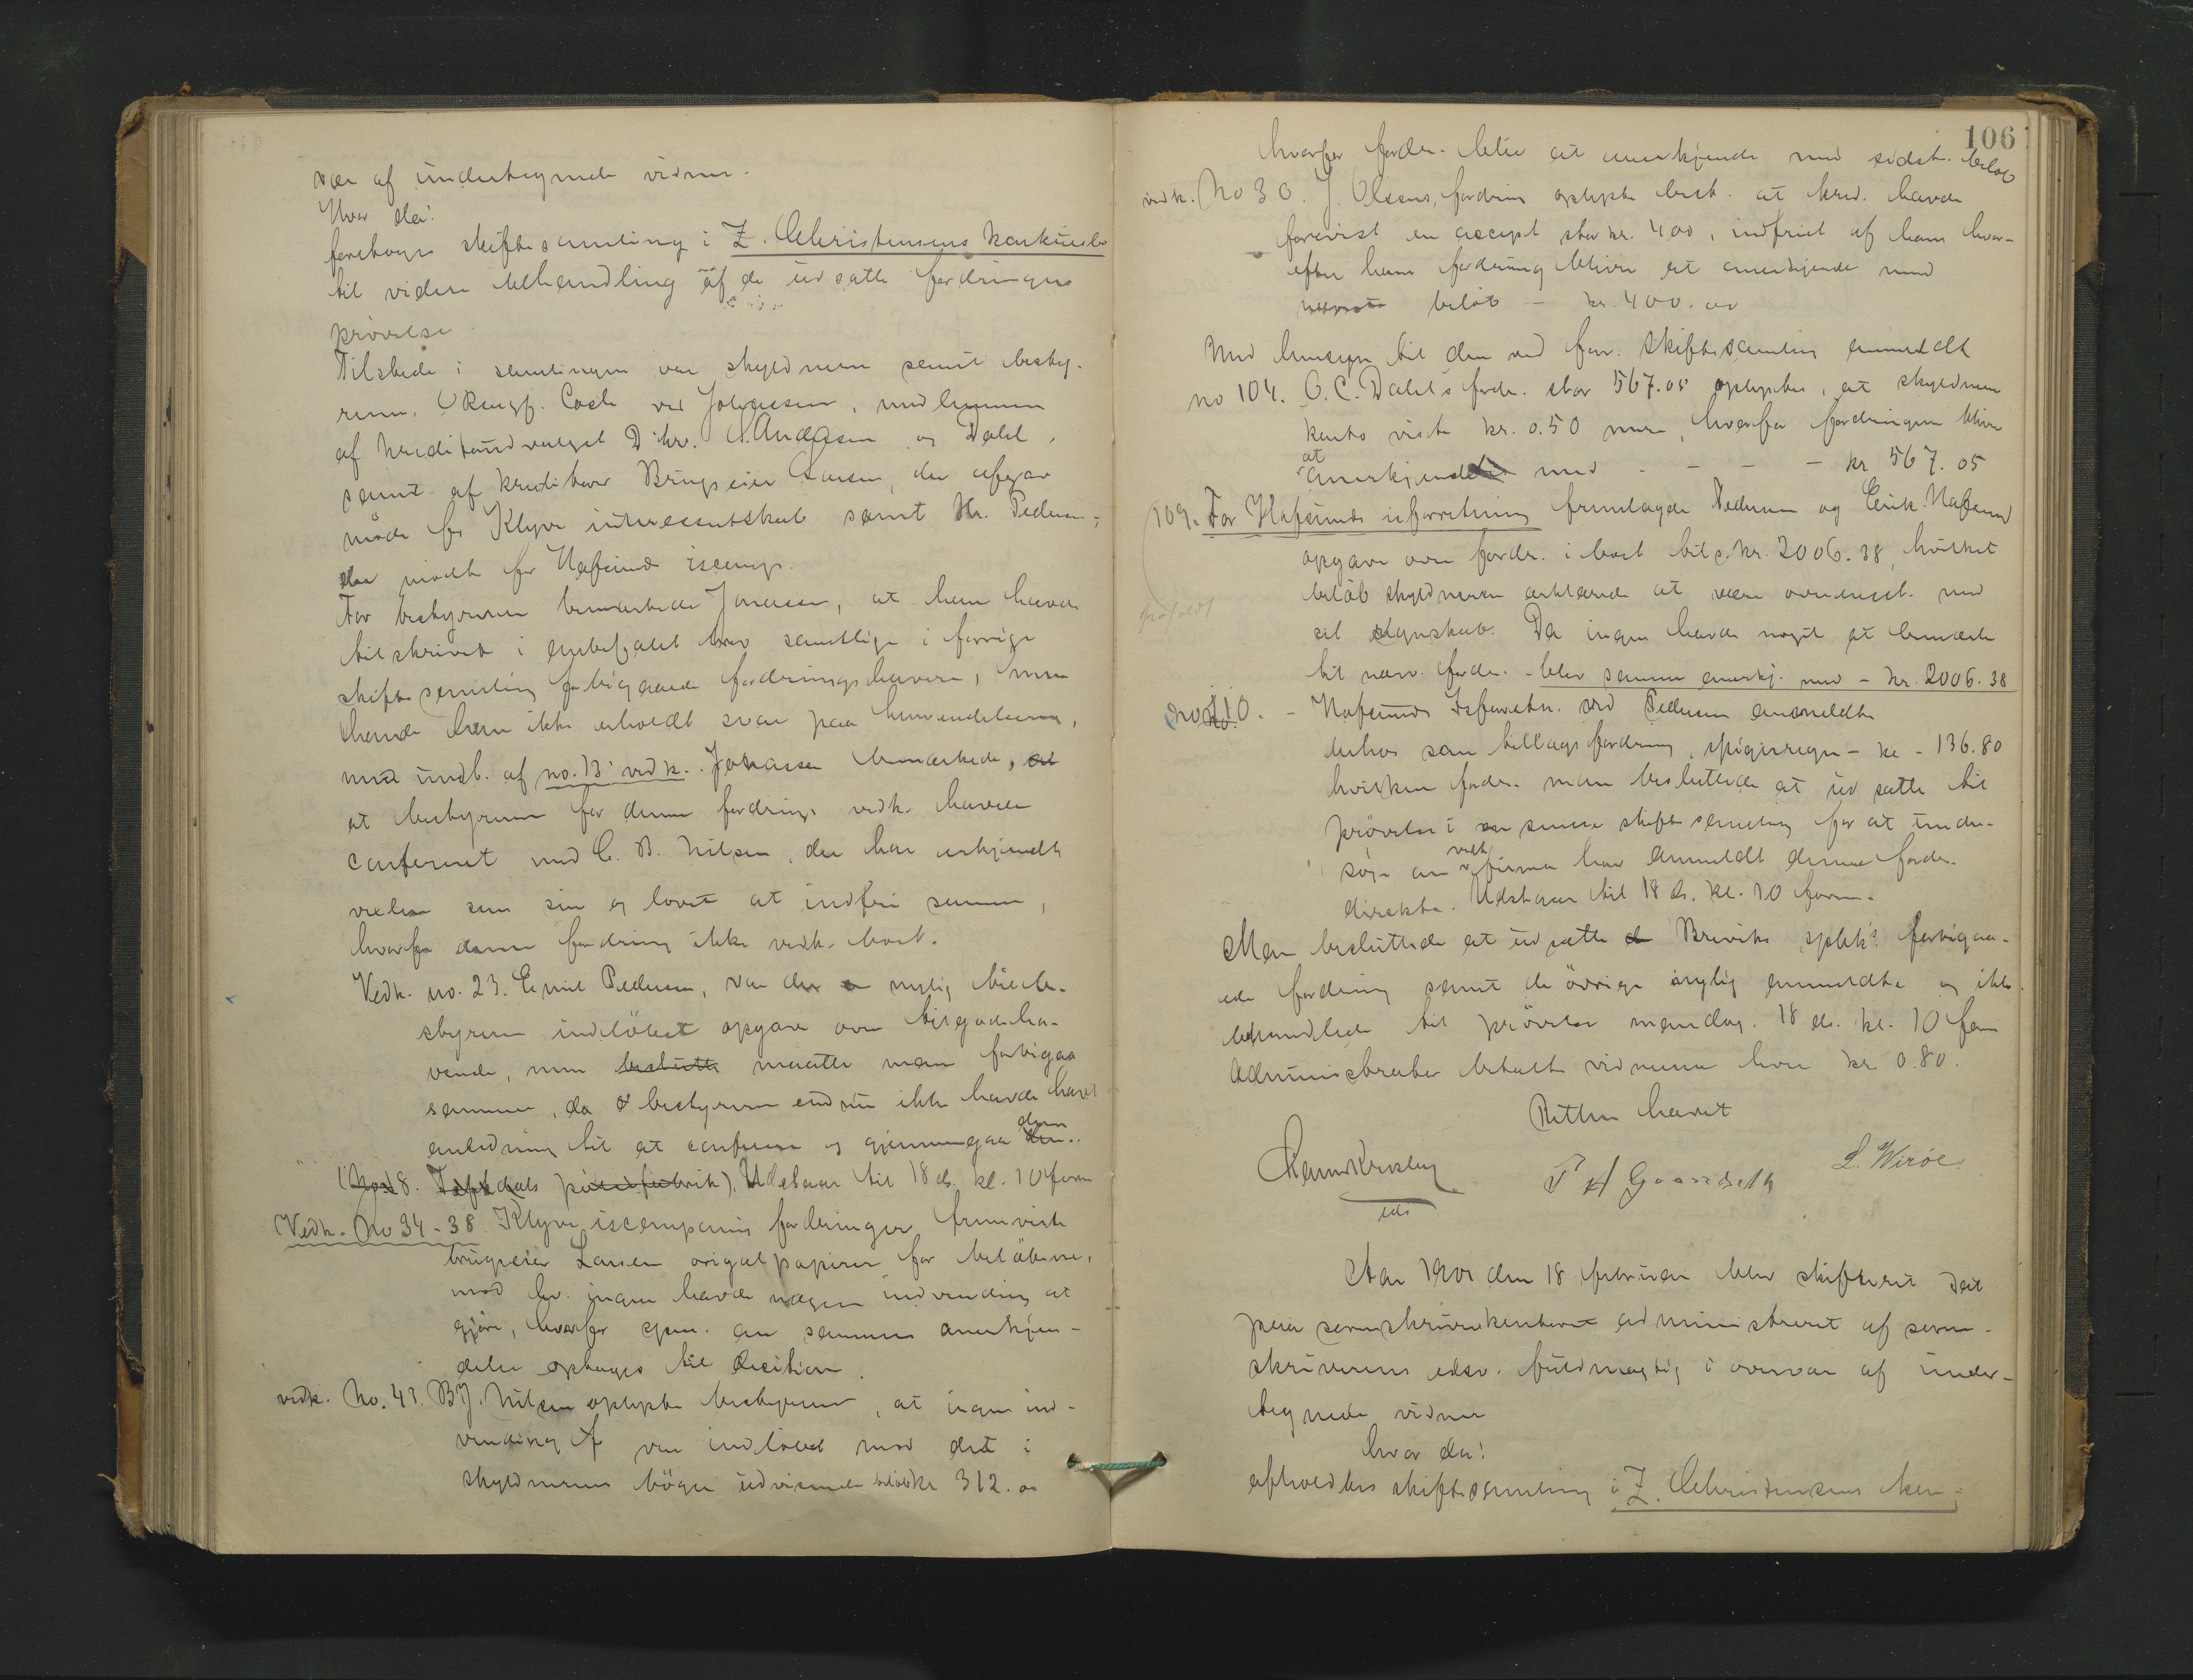 vær af undertegnede vidner.
Hvor da:
foretoges skiftesamling i Z. Christensens konkursbo
til videre behandling af de udsatte fordringers
prøvelse.
Tilstede i samlingen var skyldneren samt besty-
reren, ved Johnassen, medlemmer
af kreditorudvalget D'hrr. Andersen og Dahl,
samt af kreditorer Brugseier Larsen, der afgav
møde for Klyve interessentskab samt Hr. Pedersen,
der mødte for Hafsunds iscomp.
For bestyreren bemærkede Jonassen, at han havde
tilskrevet i anbefalet brev samtlige i forrige
skiftesamling forbigaaede fordringshavere, men
havde han ikke erholdt svar paa henvendelserne,
med undt. af no. 13 vedk. Johnassen bemærkede, at
at bestyreren for denne fordrings vedk. havde
confereret med C. B. Nilsen, der har erkjendt
vexlen som sin og lovet at indfri samme,
hvorfor denne fordring ikke vedk. boet.
Vedk. no. 23. Emil Pedersen, var der nylig til be-
styreren indløbet opgave over tilgodeha-
vende, men beslutte maatte man forbigaa
samme, da bestyreren endnu ikke havde havt
anledning til at conferere og gjennemgaa den dem.
(No 18. Udstaar til 18 ds. kl. 10 form
Vedk. No 34-38. Klyve iscompanis fordringer fremviste
brugseier Larsen origalpapirer for beløbene,
mod hv. ingen havde nogen indvending at
gjøre, hvorfor spm. om sammes anerkjen-
delse optages til decition.
vedk. No. 41. B. J. Nilsen oplyste bestyreren, at ingen ind-
vending var indløbet mod det i
skyldnerens bøger udvisende beløb kr 312.00
106
hvorfor fordr. blir at anerkjende med sidst. beløb
vedk. No 30. J. Olsens fordring oplyste best. at kred. havde
forevist en accept stor kr. 400, indfriet af ham hvor-
efter hans fordring bliver at anerkjende med
beløb - kr. 400.00
Med hensyn til den ved forr. skiftesamling anmeldt
no 104. O. C. Dahl's fordr. stor 567.05 oplystes, at skyldneren
konto viste kr. 0.50 mere, hvorfor fordringen bliver
at anerkjende med - - - - kr 567.05
109. For Hafsunds isforretning fremlagde Pedersen og Erik Hafsund
opgave over fordr. i boet til s. kr. 2006.38, hvilket
beløb skyldneren erklærede at være overensst. med
sit regnskab. Da ingen havde noget at bemærke
til nærv. fordr. - blev samme anerkj. med - kr. 2006.38
no 110. - Hafsunds Isforretn. ved Pedersen anmeldte
derhos som tillægsfordring, spigerregn - kr - 136.80
hvilken fordr. man besluttede at udsætte til
prøvelse i en senere skiftesamling for at under-
søge om vedk. firma har anmeldt denne fordr.
direkte. Udstaar til 18 ds. kl. 10 form.
Man besluttede at udsætte Breviks spbk's forbigaa-
ede fordring samt de øvrige nylig anmeldte og ikke
behandlede til prøvelse mandag. 18 ds. kl. 10 form
Administrator betalte vidnerne hver kr 0.80.
Retten hævet
L. Wirøe
Aar 1901 den 18 februar blev skifteret sat
paa sorenskriverkontoret administreret af soren-
skriverens edsv. fuldmægtig i overvær af under-
tegnede vidner
hvor da:
afholdtes skiftesamling i Z. Christensens kon-